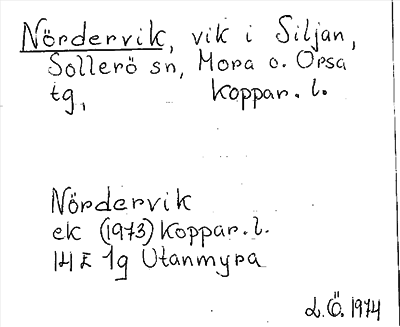 Nördervik, vik i Siljan,
Sollerö sn, Mora o. Orsa
tg, Koppar. l.
Nördervik
ek (1973) Koppar. l.
14 E 1g Utanmyra
L.Ö. 1974